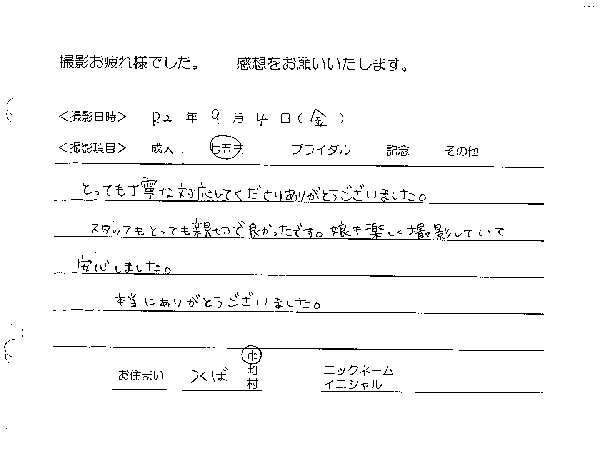 撮影お疲れ様でした。 感想をお願いいたします。
<撮影日時> R2 年 9 月 4 日 (金)
<撮影項目> 成人 七五三 ブライダル 記念 その他
とっても丁寧な対応してくださりありがとうございました。
スタッフもとっても親切で良かったです。娘も楽しく撮影していて
安心しました。
本当にありがとうございました。
お住まい つくば 市 町 村
ニックネーム
イニシャル